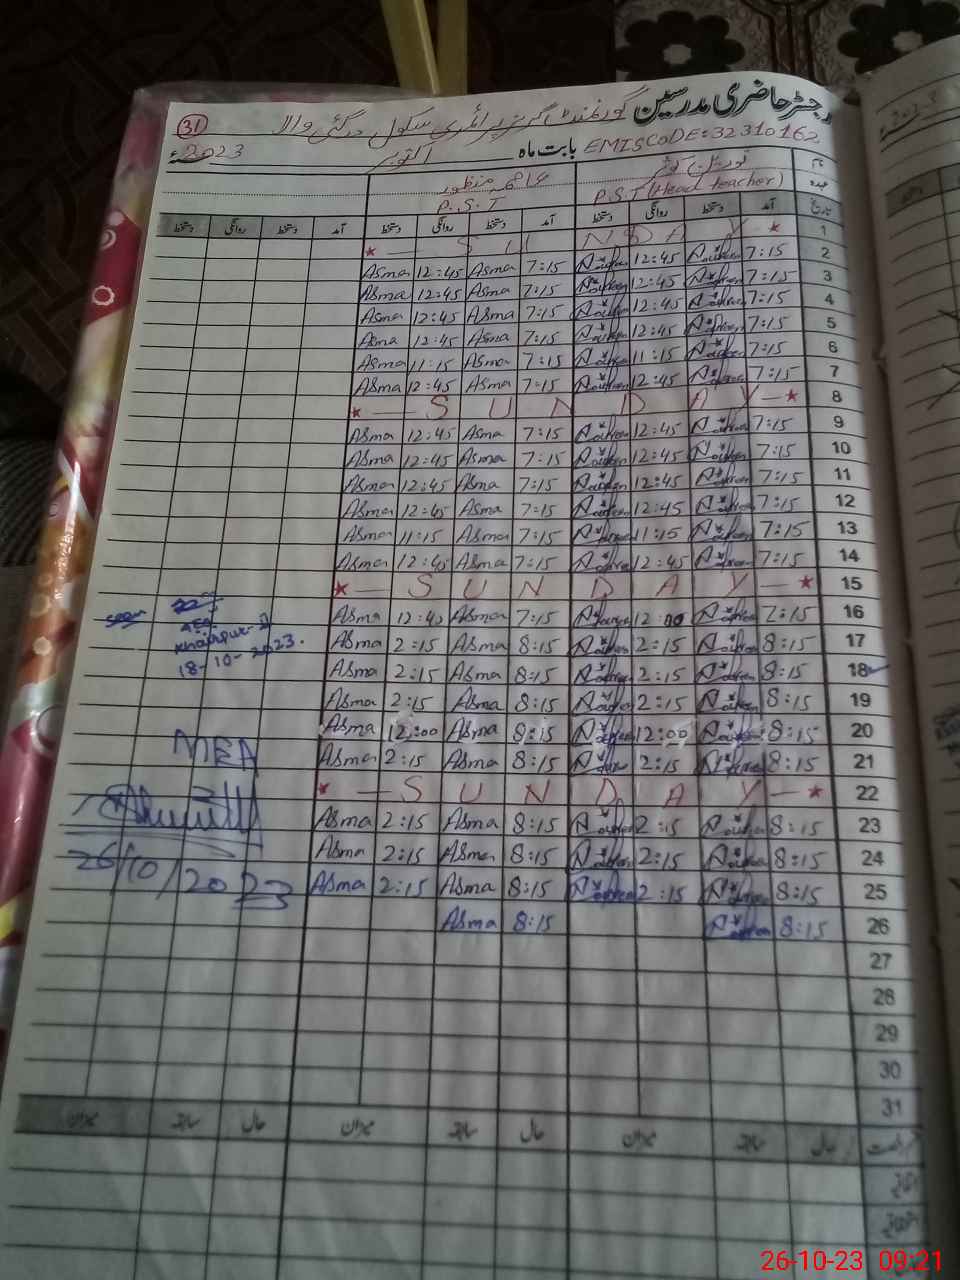 رجسٹر حاضری مدرسین گورنمنٹ گرلز پرائمری سکول درگئی والا
31
EMIS CODE: 32310162 بابت ماہ اکتوبر 2023ء
نام نورین کوثر عاصمہ منظور
عہدہ P.S.T (Head teacher) P.S.T
تاریخ آمد دستخط روانگی دستخط آمد دستخط روانگی دستخط آمد دستخط روانگی دستخط
* — S U N D A Y — * 1
Asma 12:45 Asma 7:15 12:45 7:15 2
Asma 12:45 Asma 7:15 12:45 7:15 3
Asma 12:45 Asma 7:15 12:45 7:15 4
Asma 12:45 Asma 7:15 12:45 7:15 5
Asma 11:15 Asma 7:15 11:15 7:15 6
Asma 12:45 Asma 7:15 12:45 7:15 7
* — S U N D A Y — * 8
Asma 12:45 Asma 7:15 12:45 7:15 9
Asma 12:45 Asma 7:15 12:45 7:15 10
Asma 12:45 Asma 7:15 12:45 7:15 11
Asma 12:45 Asma 7:15 12:45 7:15 12
Asma 11:15 Asma 7:15 11:15 7:15 13
Asma 12:45 Asma 7:15 12:45 7:15 14
* — S U N D A Y — * 15
Asma Asma 7:15 7:15 16
Asma 2:15 Asma 8:15 2:15 8:15 17
Asma 2:15 Asma 8:15 2:15 8:15 18
Asma 2:15 Asma 8:15 2:15 8:15 19
Asma 12:00 Asma 8:15 12:00 8:15 20
Asma 2:15 Asma 8:15 2:15 8:15 21
* — S U N D A Y — * 22
Asma 2:15 Asma 8:15 2:15 8:15 23
Asma 2:15 Asma 8:15 2:15 8:15 24
Asma 2:15 Asma 8:15 2:15 8:15 25
Asma 8:15 8:15 26
27
28
29
30
31
seen
AEO
Khairpur-II
18-10-2023.
MEA
26/10/2023
حال سابقہ میزان حال سابقہ میزان حال سابقہ میزان
26-10-23 09:21